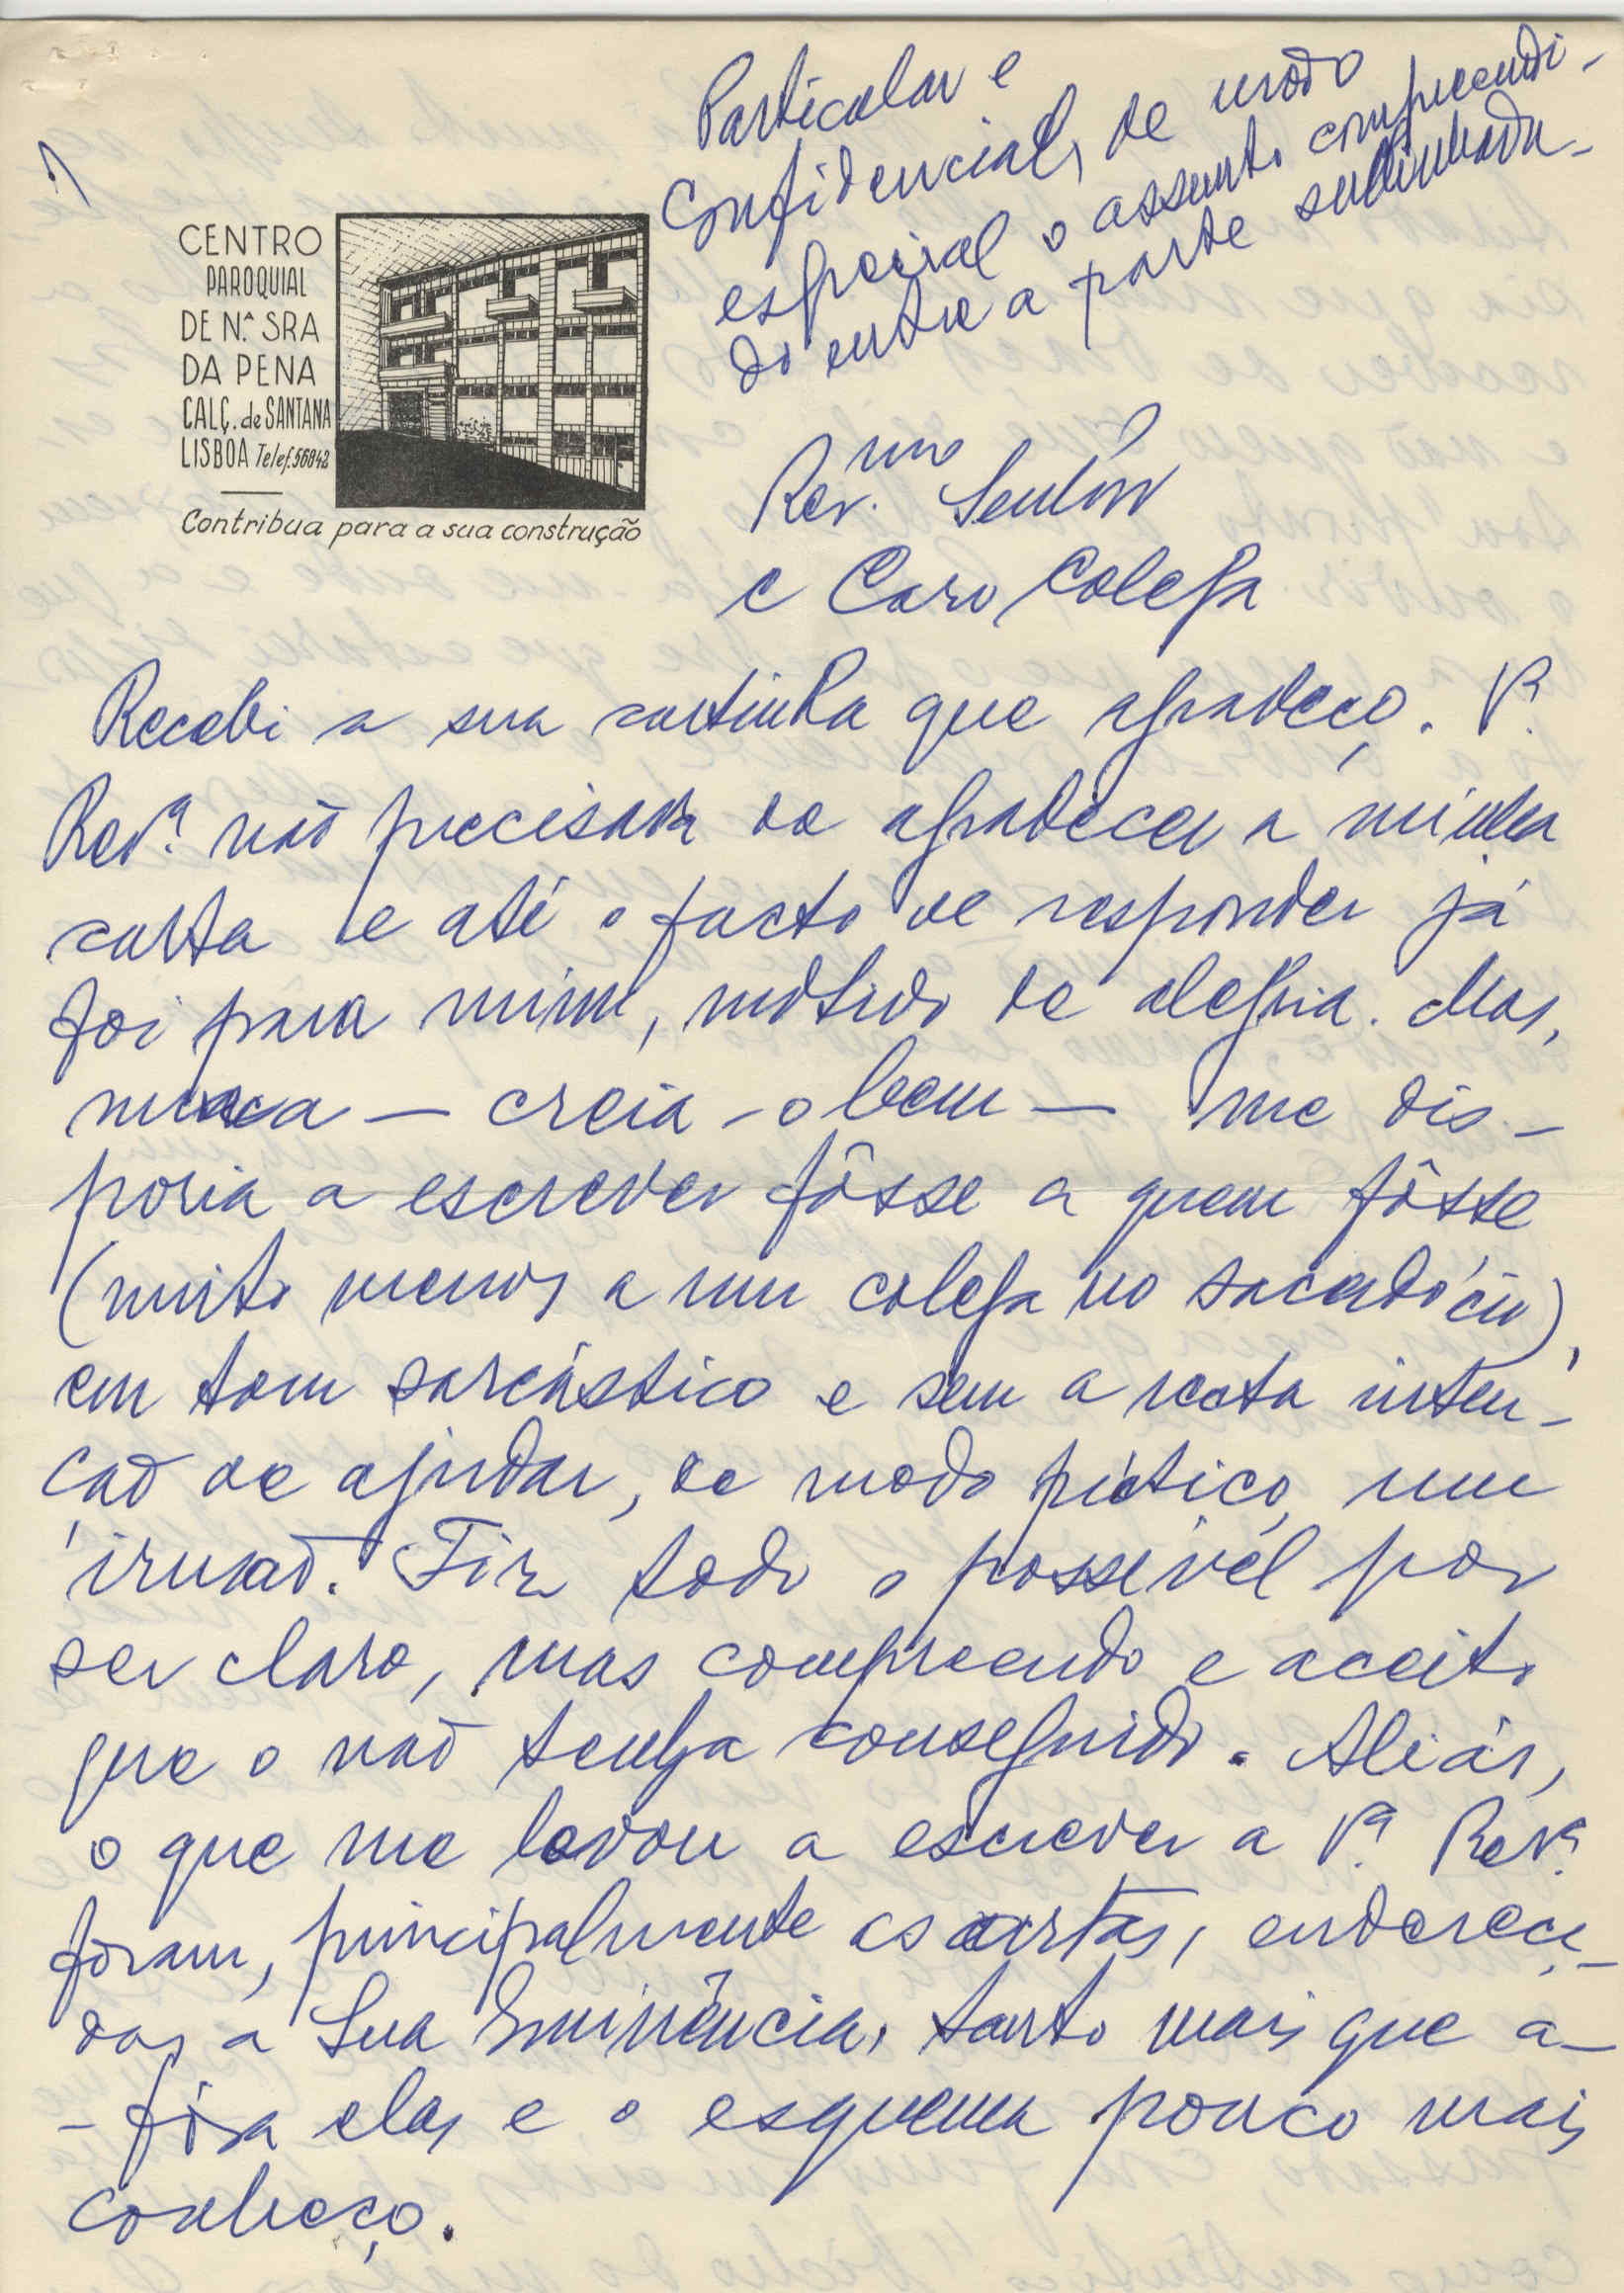 1)
Particular e
Confidencial, de modo
especial o assunto compreendi-
do entre a parte sublinhada-
CENTRO
PAROQUIAL
DE N.ª SRA
DA PENA
CALÇ. de SANTANA
LISBOA Telef. 56842
Contribua para a sua construção
Rev.mo Senhor
e Caro Colega
Recebi a sua cartinha que agradeço. V.ª
Rev.ª não precisava de agradecer a minha
carta e até o facto de responder já
foi para mim, motivo de alegria. Mas,
nunca — creia-o bem — me dis-
poria a escrever fôsse a quem fôsse
(muito menos a um colega no sacerdócio),
em tom sarcástico e sem a recta inten-
ção de ajudar, de modo prático, um
irmão. Fiz todo o possível por
ser claro, mas compreendo e aceito
que o não tenha conseguido. Aliás,
o que me levou a escrever a V.ª Rev.ª
foram, principalmente as cartas, endereça-
das a Sua Eminência, tanto mais que a-
-fóra elas e o esquema pouco mais
conheço.